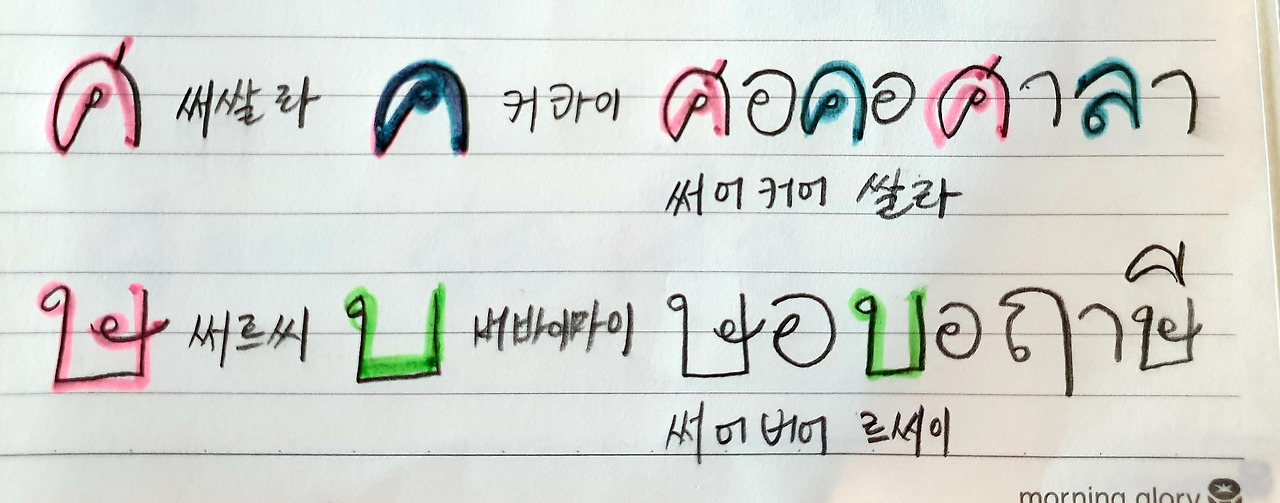 ศ 써쌀라 ค 커콰이 ศอคอศาลา
써어커어 쌀라
ษ 써르씨 บ 버바이마이 ษอบอฤาษี
써어버어 르쎄이
morning glory